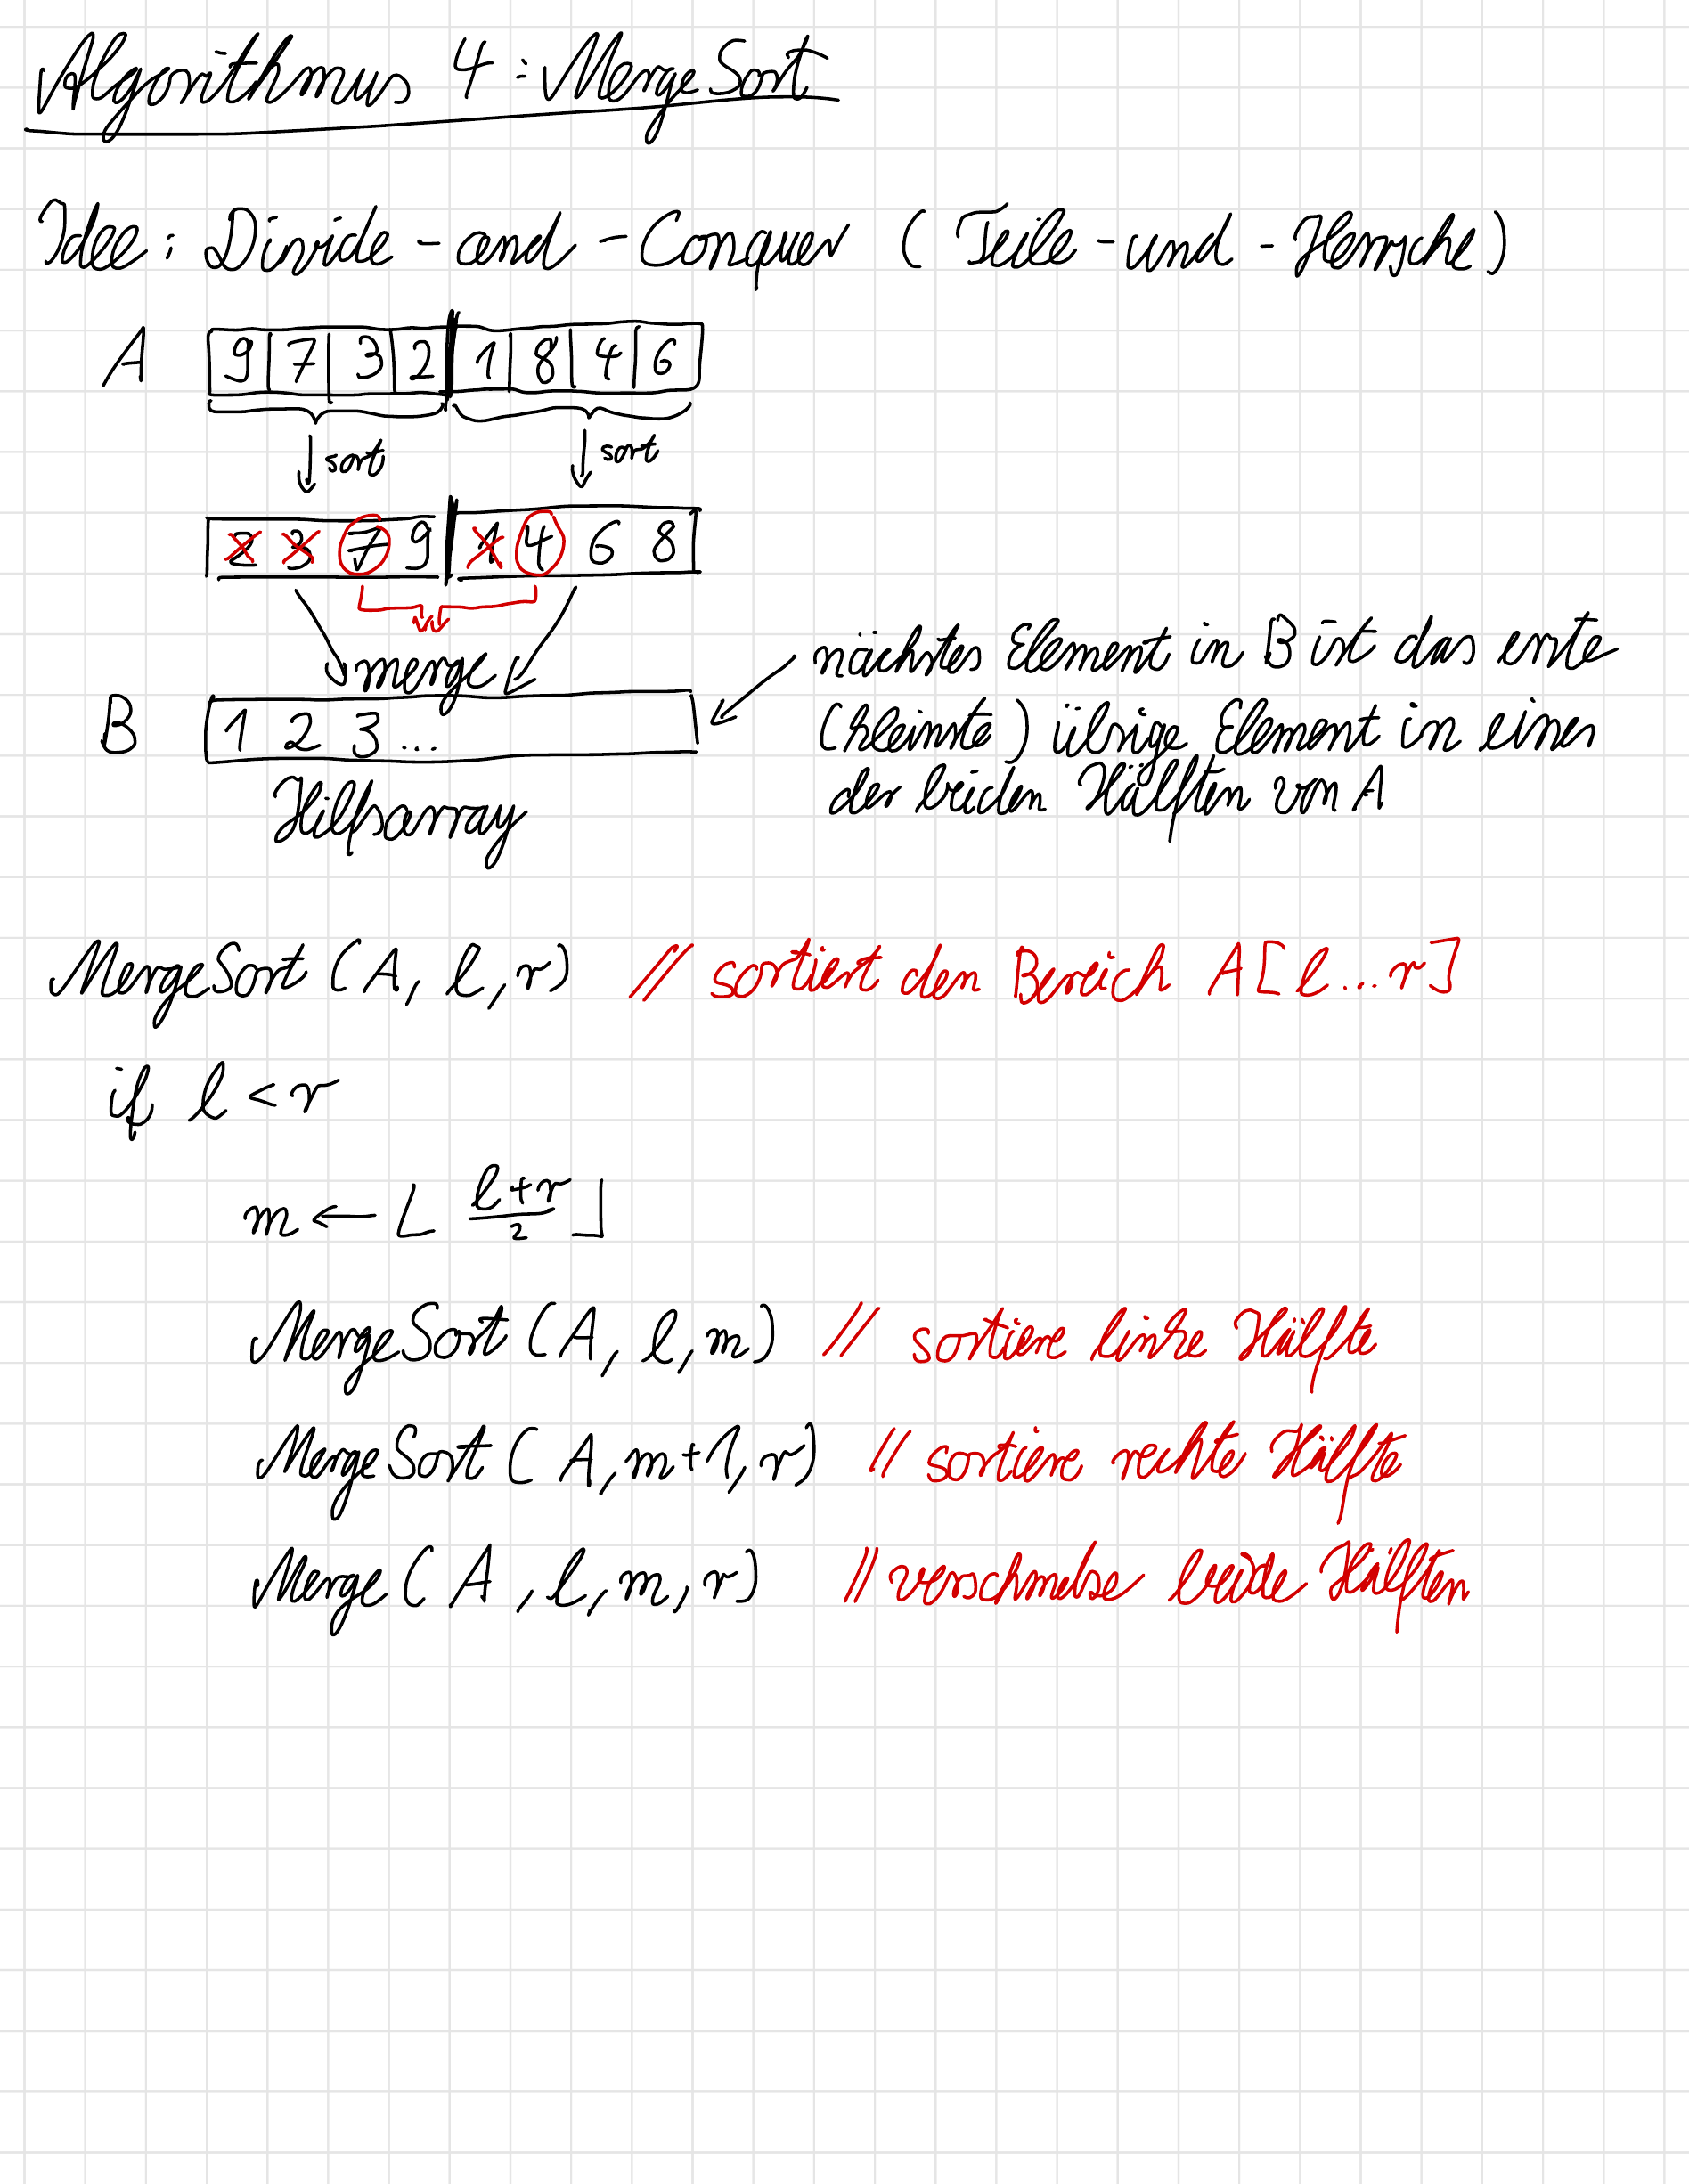 Algorithmus 4: MergeSort
Idee: Divide-and-Conquer (Teile-und-Herrsche)
A 9 7 3 2 1 8 4 6
sort sort
2 3 7 9 1 4 6 8
merge
nächstes Element in B ist das erste
B 1 2 3 ...
(kleinste) übrige Element in einer
der beiden Hälften von A
Hilfsarray
MergeSort (A, l, r) // sortiert den Bereich A[l...r]
if l < r
m ← ⌊ (l+r)/2 ⌋
MergeSort (A, l, m) // sortiere linke Hälfte
MergeSort (A, m+1, r) // sortiere rechte Hälfte
Merge (A, l, m, r) // verschmelze beide Hälften